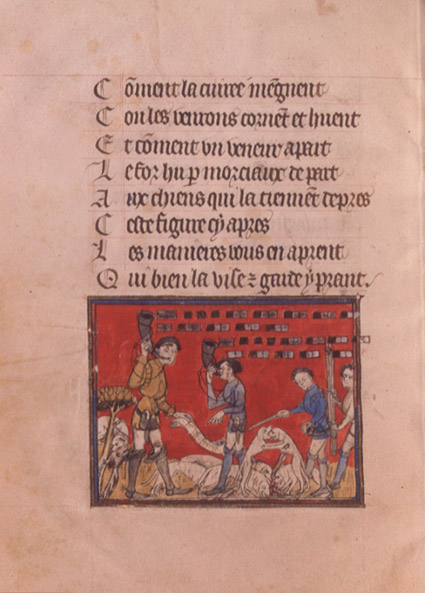 Cõment la cuiree mẽgnent
Con les cornẽt et huent
Et cõment vn veneur apart
Le for hu p morciaux de part
Aux chiens qui la tiennẽt de pres
Ceste figure cy apres
Les manieres vous en aprent
Qui bien la vise ⁊ garde y prant.